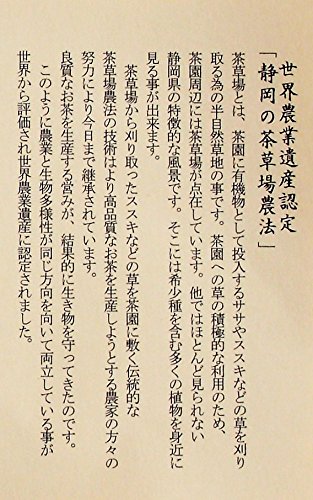 世界農業遺産認定
「静岡の茶草場農法」
茶草場とは、茶園に有機物として投入するササやススキなどの草を刈り
取る為の半自然草地の事です。茶園への草の積極的な利用のため、
茶園周辺には茶草場が点在しています。他ではほとんど見られない
静岡県の特徴的な風景です。そこには希少種を含む多くの植物を身近に
見る事が出来ます。
茶草場から刈り取ったススキなどの草を茶園に敷く伝統的な
茶草場農法の技術はより高品質なお茶を生産しようとする農家の方々の
努力により今日まで継承されています。
良質なお茶を生産する営みが、結果的に生き物を守ってきたのです。
このように農業と生物多様性が同じ方向を向いて両立している事が
世界から評価され世界農業遺産に認定されました。